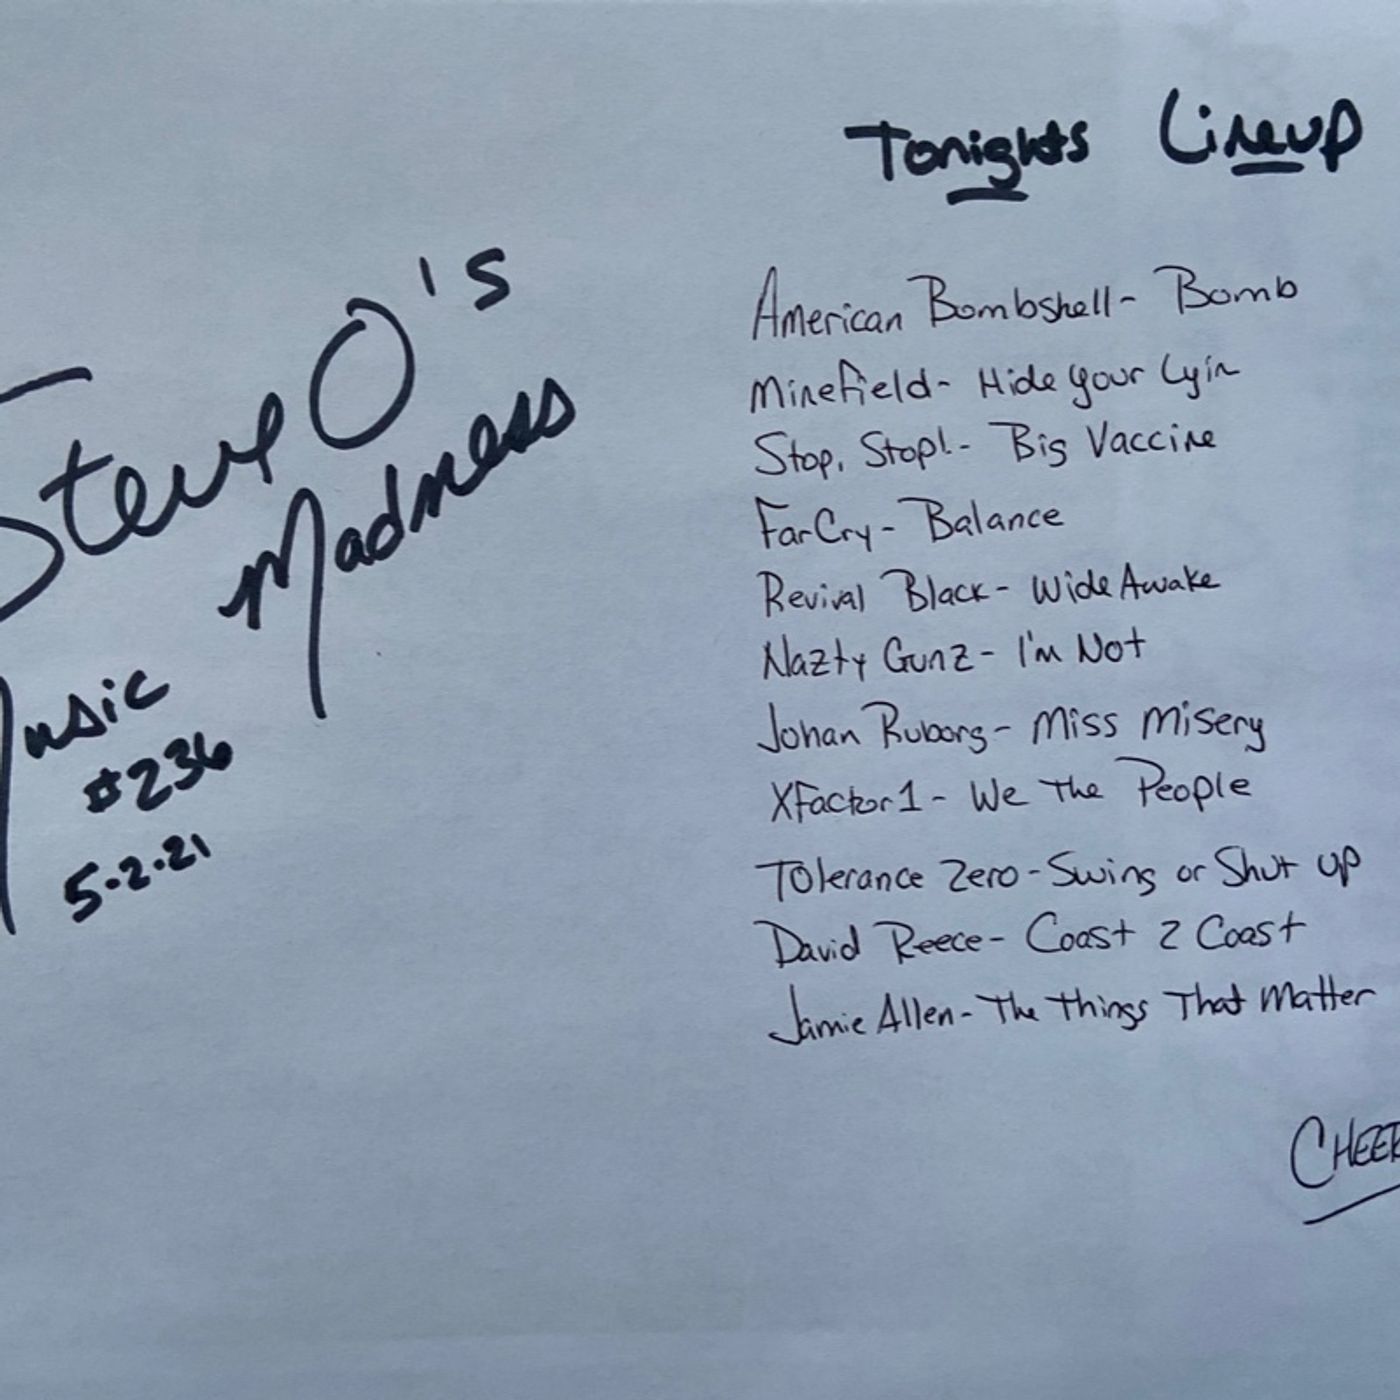 Steve O's
Madness
Music
#236
5.2.21
Tonights Lineup
American Bombshell - Bomb
Minefield - Hide your Lyin
Stop, Stop! - Big Vaccine
FarCry - Balance
Revival Black - Wide Awake
Nazty Gunz - I'm Not
Johan Ruborg - Miss Misery
XFactor1 - We The People
Tolerance Zero - Swing or Shut up
David Reece - Coast 2 Coast
Jamie Allen - The Things That Matter